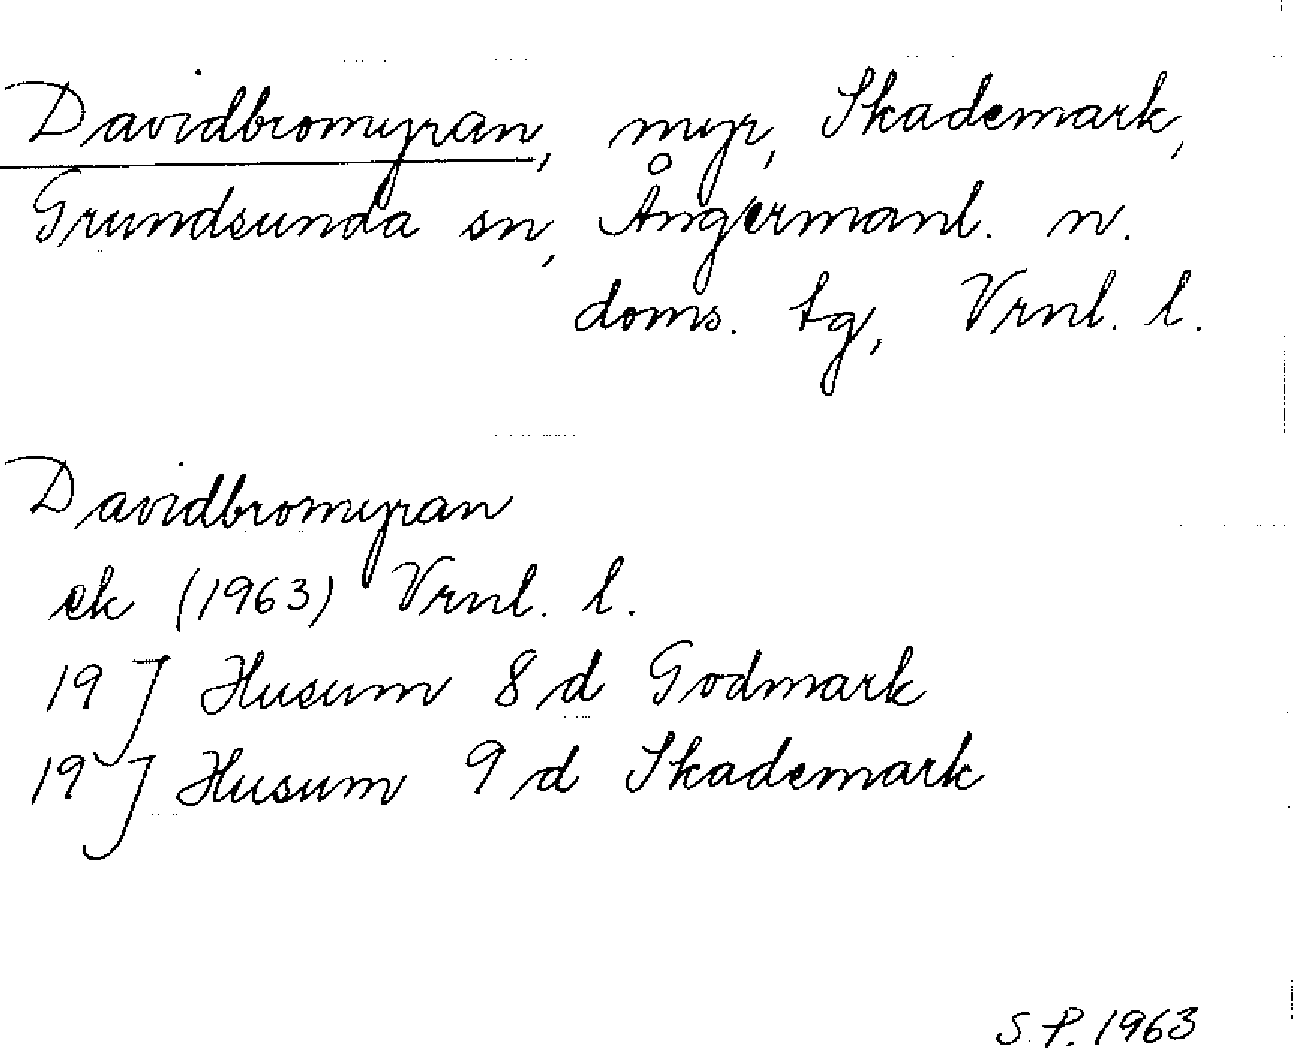 Davidbromyran, myr, Skademark,
Grundsunda sn, Ångermanl. n.
doms. tg, Vrnl. l.
Davidbromyran
ek (1963) Vrnl. l.
19 J Husum 8 d Godmark
19 J Husum 9 d Skademark
S.P. 1963